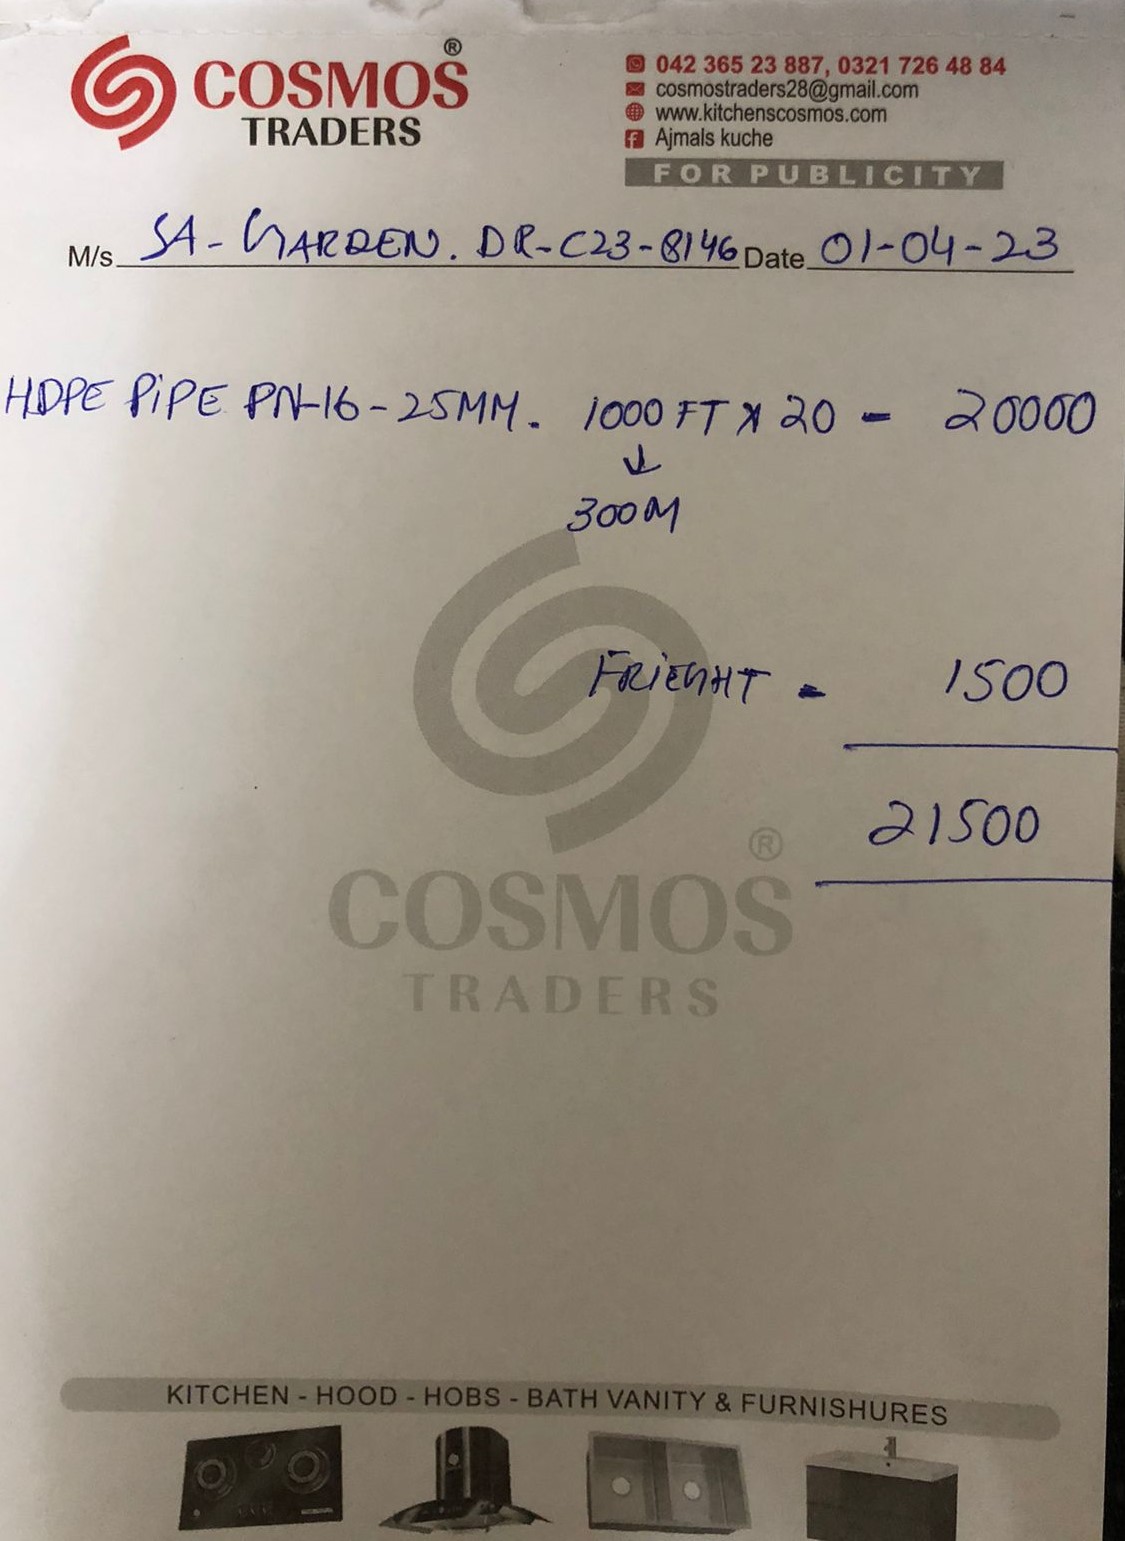 COSMOS ®
TRADERS
042 365 23 887, 0321 726 48 84
cosmostraders28@gmail.com
www.kitchenscosmos.com
Ajmals kuche
FOR PUBLICITY
M/s SA-GARDEN. DR-C23-8146 Date 01-04-23
HDPE PiPE PN-16-25MM. 1000 FT X 20 - 20000
↓
300M
FRiEGHT - 1500
21500
®
COSMOS
TRADERS
KITCHEN - HOOD - HOBS - BATH VANITY & FURNISHURES